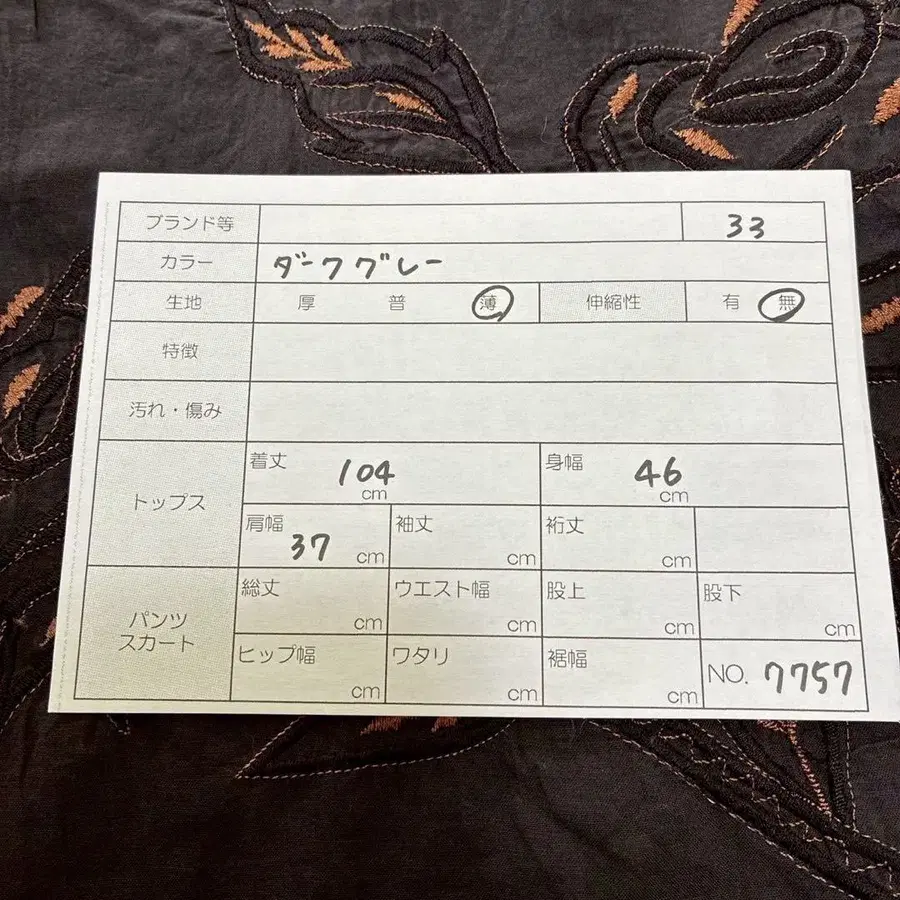 ブランド等 33
カラー ダークグレー
生地 厚 普 薄 伸縮性 有 無
特徴
汚れ・傷み
トップス 着丈 104 cm 身幅 46 cm
肩幅 37 cm 袖丈 cm 裄丈 cm
パンツ スカート 総丈 cm ウエスト幅 cm 股上 cm 股下 cm
ヒップ幅 cm ワタリ cm 裾幅 cm NO. 7757